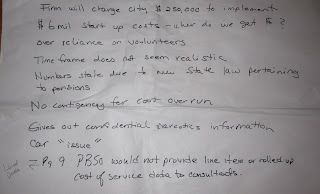 Firm will charge city $250,000 to implement
$6 mil start up costs - wher do we get $ ?
over reliance on volunteers
Time frame does not seem realistic
Numbers stale due to new State law pertaining
to pensions
No contigency for cost overrun
Gives out confidential narcotics information
Car "issue"
Pg 9 PBSO would not provide line item or rolled up
cost of service data to consultants.